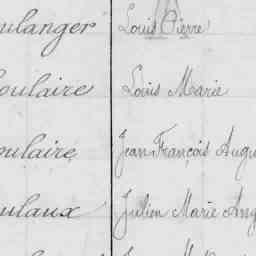 oulanger Louis Pierre
oulaire Louis Marie
oulaire Jean François Augu
ulaux Julien Marie Ang